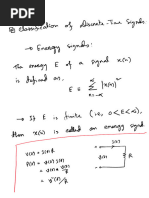 ⊛ Classification of Discrete-Time Signals
→ Energy signals:
The energy E of a signal x(n)
is defined as,
E ≡ ∞ Σ n=-∞ |x(n)|²
→ If E is finite (i.e., 0<E<∞),
then x(n) is called an energy signal
v(t) = i(t) R
P(t) = v(t) i(t)
= v²(t)/R
i(t)
v(t)
R